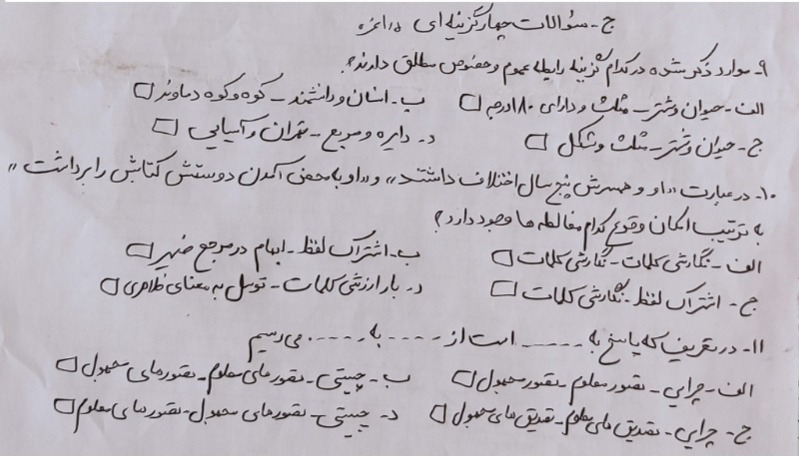 ج- سوالات چهارگزینه ای ۱/۵ نمره
۹- موارد ذکر شده در کدام گزینه رابطه عموم و خصوص مطلق دارند؟
الف- حیوان و شتر- مثلث و دارای ۱۸۰ درجه □ ب- انسان و دانشمند- کوه و کوه دماوند □
ج- حیوان و شتر- مثلث و شکل □ د- دایره و مربع- تهران و آسیایی □
۱۰- در عبارت «او و همسرش پنج سال اختلاف داشتند» و «او به محض آمدن دوستش کتابش را برداشت»
به ترتیب امکان وقوع کدام مغالطه ها وجود دارد؟
الف- نگارشی کلمات- نگارشی کلمات □ ب- اشتراک لفظ- ابهام در مرجع ضمیر □
ج- اشتراک لفظ- نگارشی کلمات □ د- بار ارزشی کلمات- توسل به معنای ظاهری □
۱۱- در تعریف که پاسخ به ----- است از ---- به ----- می رسیم
الف- چرایی- تصور معلوم- تصور مجهول □ ب- چیستی- تصورهای معلوم- تصورهای مجهول □
ج- چرایی- تصدیق های معلوم- تصدیق های مجهول □ د- چیستی- تصورهای مجهول- تصورهای معلوم □